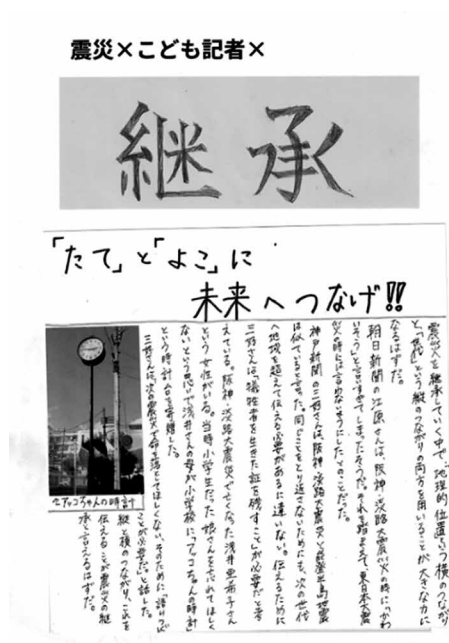 震災×こども記者×
継承
「たて」と「よこ」に
未来へつなげ!!
震災を継承していく中で、「地理的位置」という横のつながり
と、「世代」という縦のつながりの両方を用いることが、大きな力に
なるはずだ。
朝日新聞の江原さんは、阪神・淡路大震災の時に「かわ
いそう」と言いすぎてしまったそうだ。それを踏まえて、東日本大震
災の時には言わないようにしたとのことだった。
神戸新聞の三好さんは、阪神・淡路大震災と能登半島地震
は似ていると言った。同じことをとり返さないためにも、次の世代
へ地域を超えて伝える必要があるに違いない。伝えるために
三好さんは、「犠牲者を生きた証を残すこと」が必要だと考
えている。阪神・淡路大震災で亡くなった浅井亜希子さん
という女性がいる。当時小学生だった娘さんを忘れてほしく
ないという思いで浅井さんの母が小学校に「アッコちゃんの時計」
という時計台を寄贈した。
三好さんは、次の震災で命を落としてほしくない、「語りつぐ
ことが必要だ」と話した。
縦と横のつながり、これを
伝えることが震災の継
承と言えるはずだ。
アッコちゃんの時計